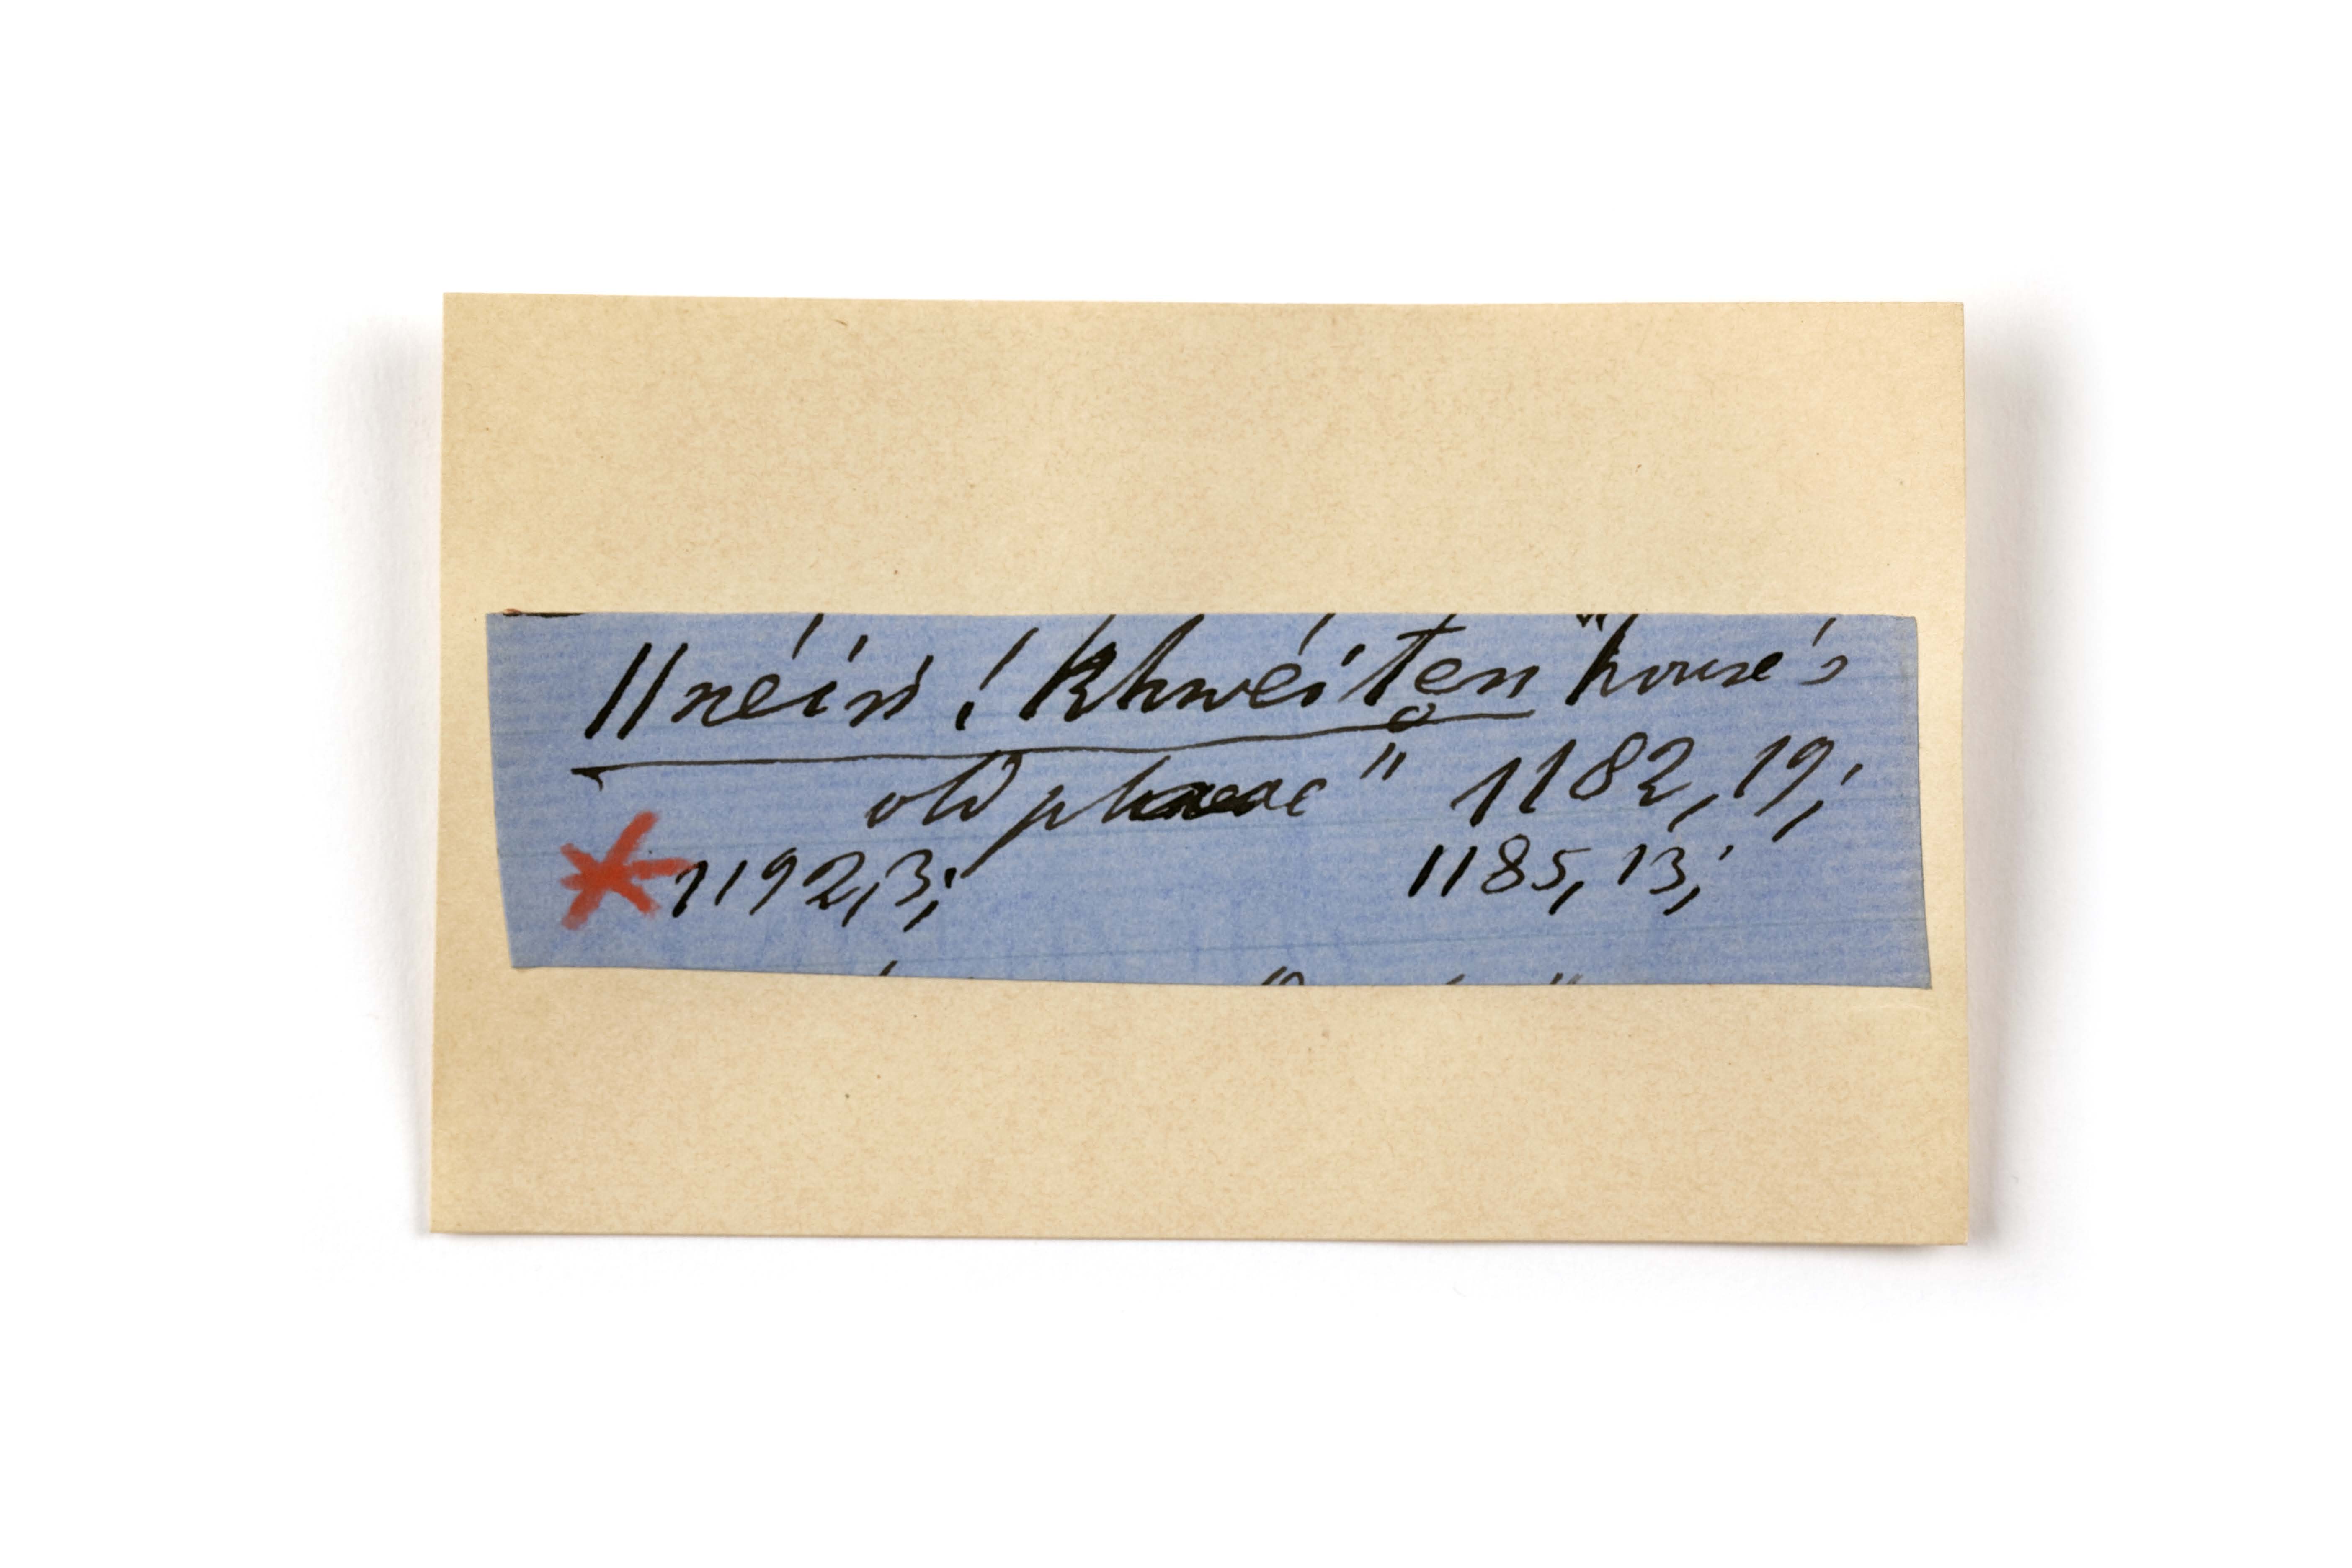 //néíń !khwéíten "house's
old place" 1182, 19;
1185, 13;
* 1192,3;